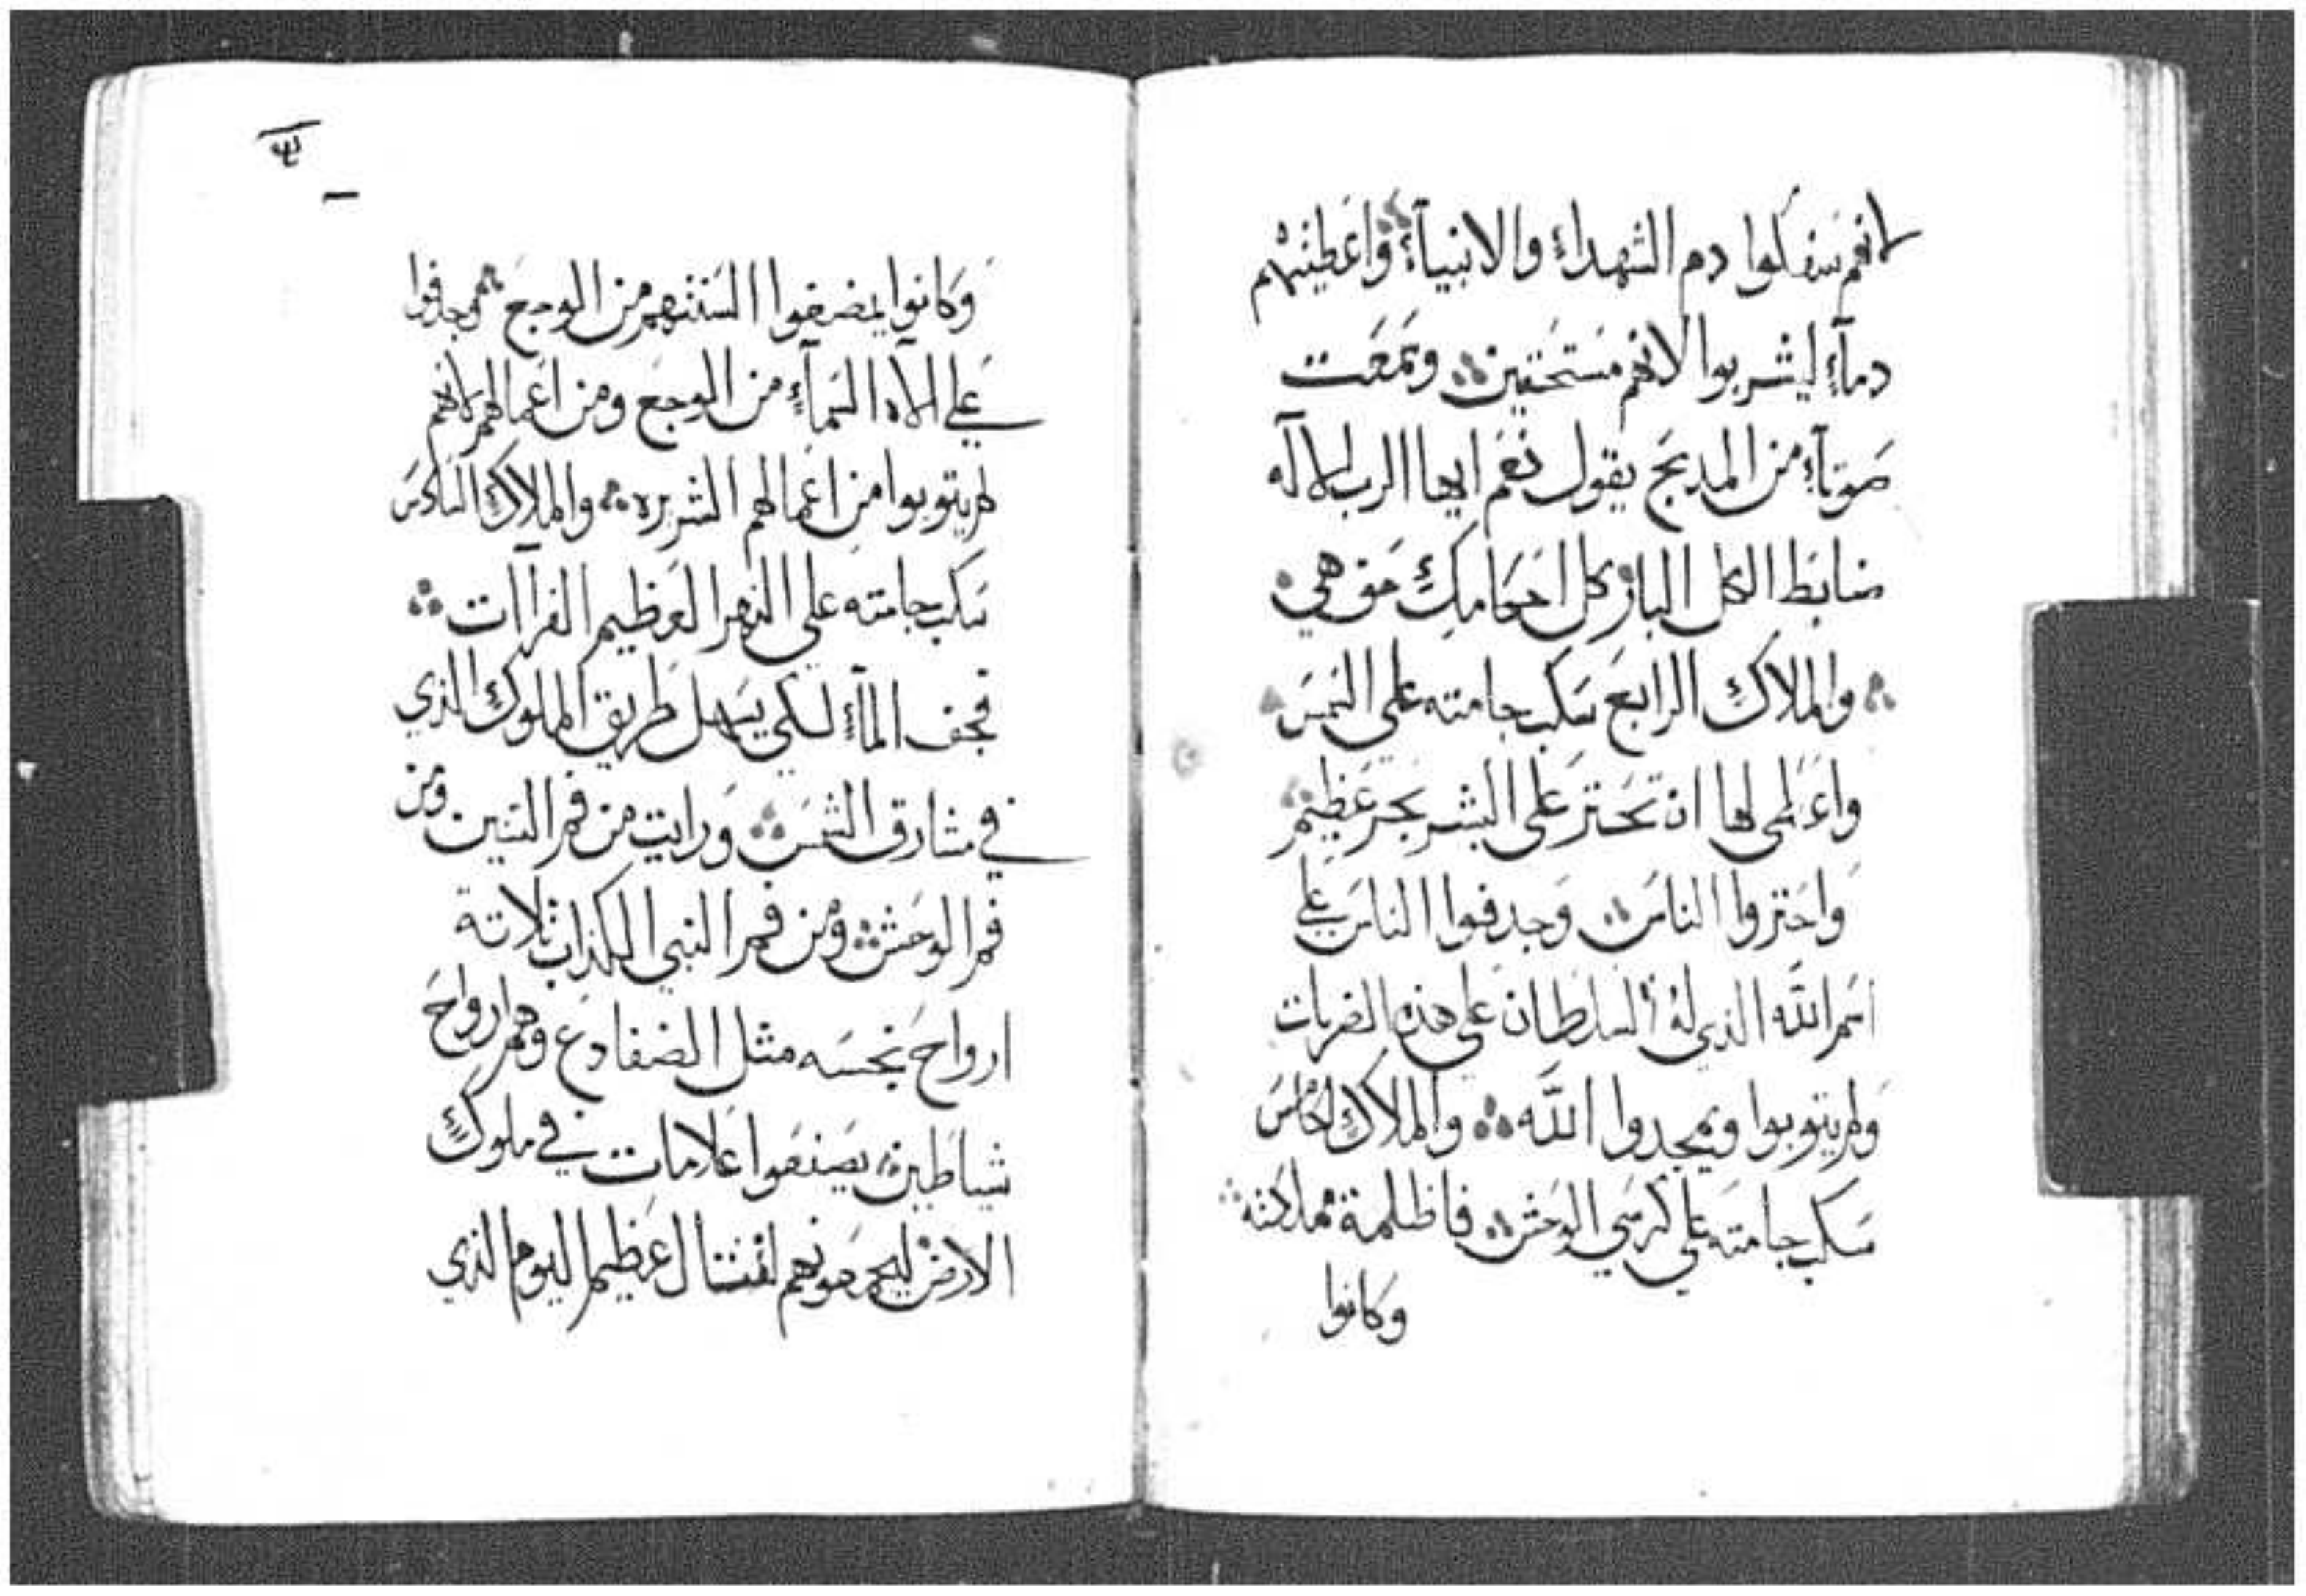 لانهم سفكوا دم الشهداء والانبياء واعطيتهم
دمآء ليشربوا لانهم مستحقين وسمعت
صوتآء من المدبح يقول نعم ايها الرب الالآه
ضابط الكل البار كل احكامك حق هي
والملاك الرابع سكب جامته علي الشمس
واعطي لها ان تحترّ علي البشر بحر عظيم
واحتروا الناس وجدفوا الناس علي
اسم اللّه الذي له السلطان علي هذه الضربات
ولم يتوبوا ويمجدوا اللّه والملاك الخامس
سكب جامته علي كرسي الوحش فاظلمة مملكته
وكانوا
وكانوا يمضغوا السنتهم من الوجع وجدفوا
علي الاه السمآء من الوجع ومن اعمالهم لانهم
لم يتوبوا من اعمالهم الشريره والملاك السادس
سكب جامته علي النهر العظيم الفراآت
فجف المآء لكي يسهل طريق الملوك الذي
في مشارق الشمس ورايت من فم التنين ومن
فم الوحش ومن فم النبي الكذاب ثلاتة
ارواح نجسه مثل الضفادع وهم ارواح
شياطين يصنعوا علامات في ملوك
الارض ليجمعونهم لقتتال عظيم اليوم الذي